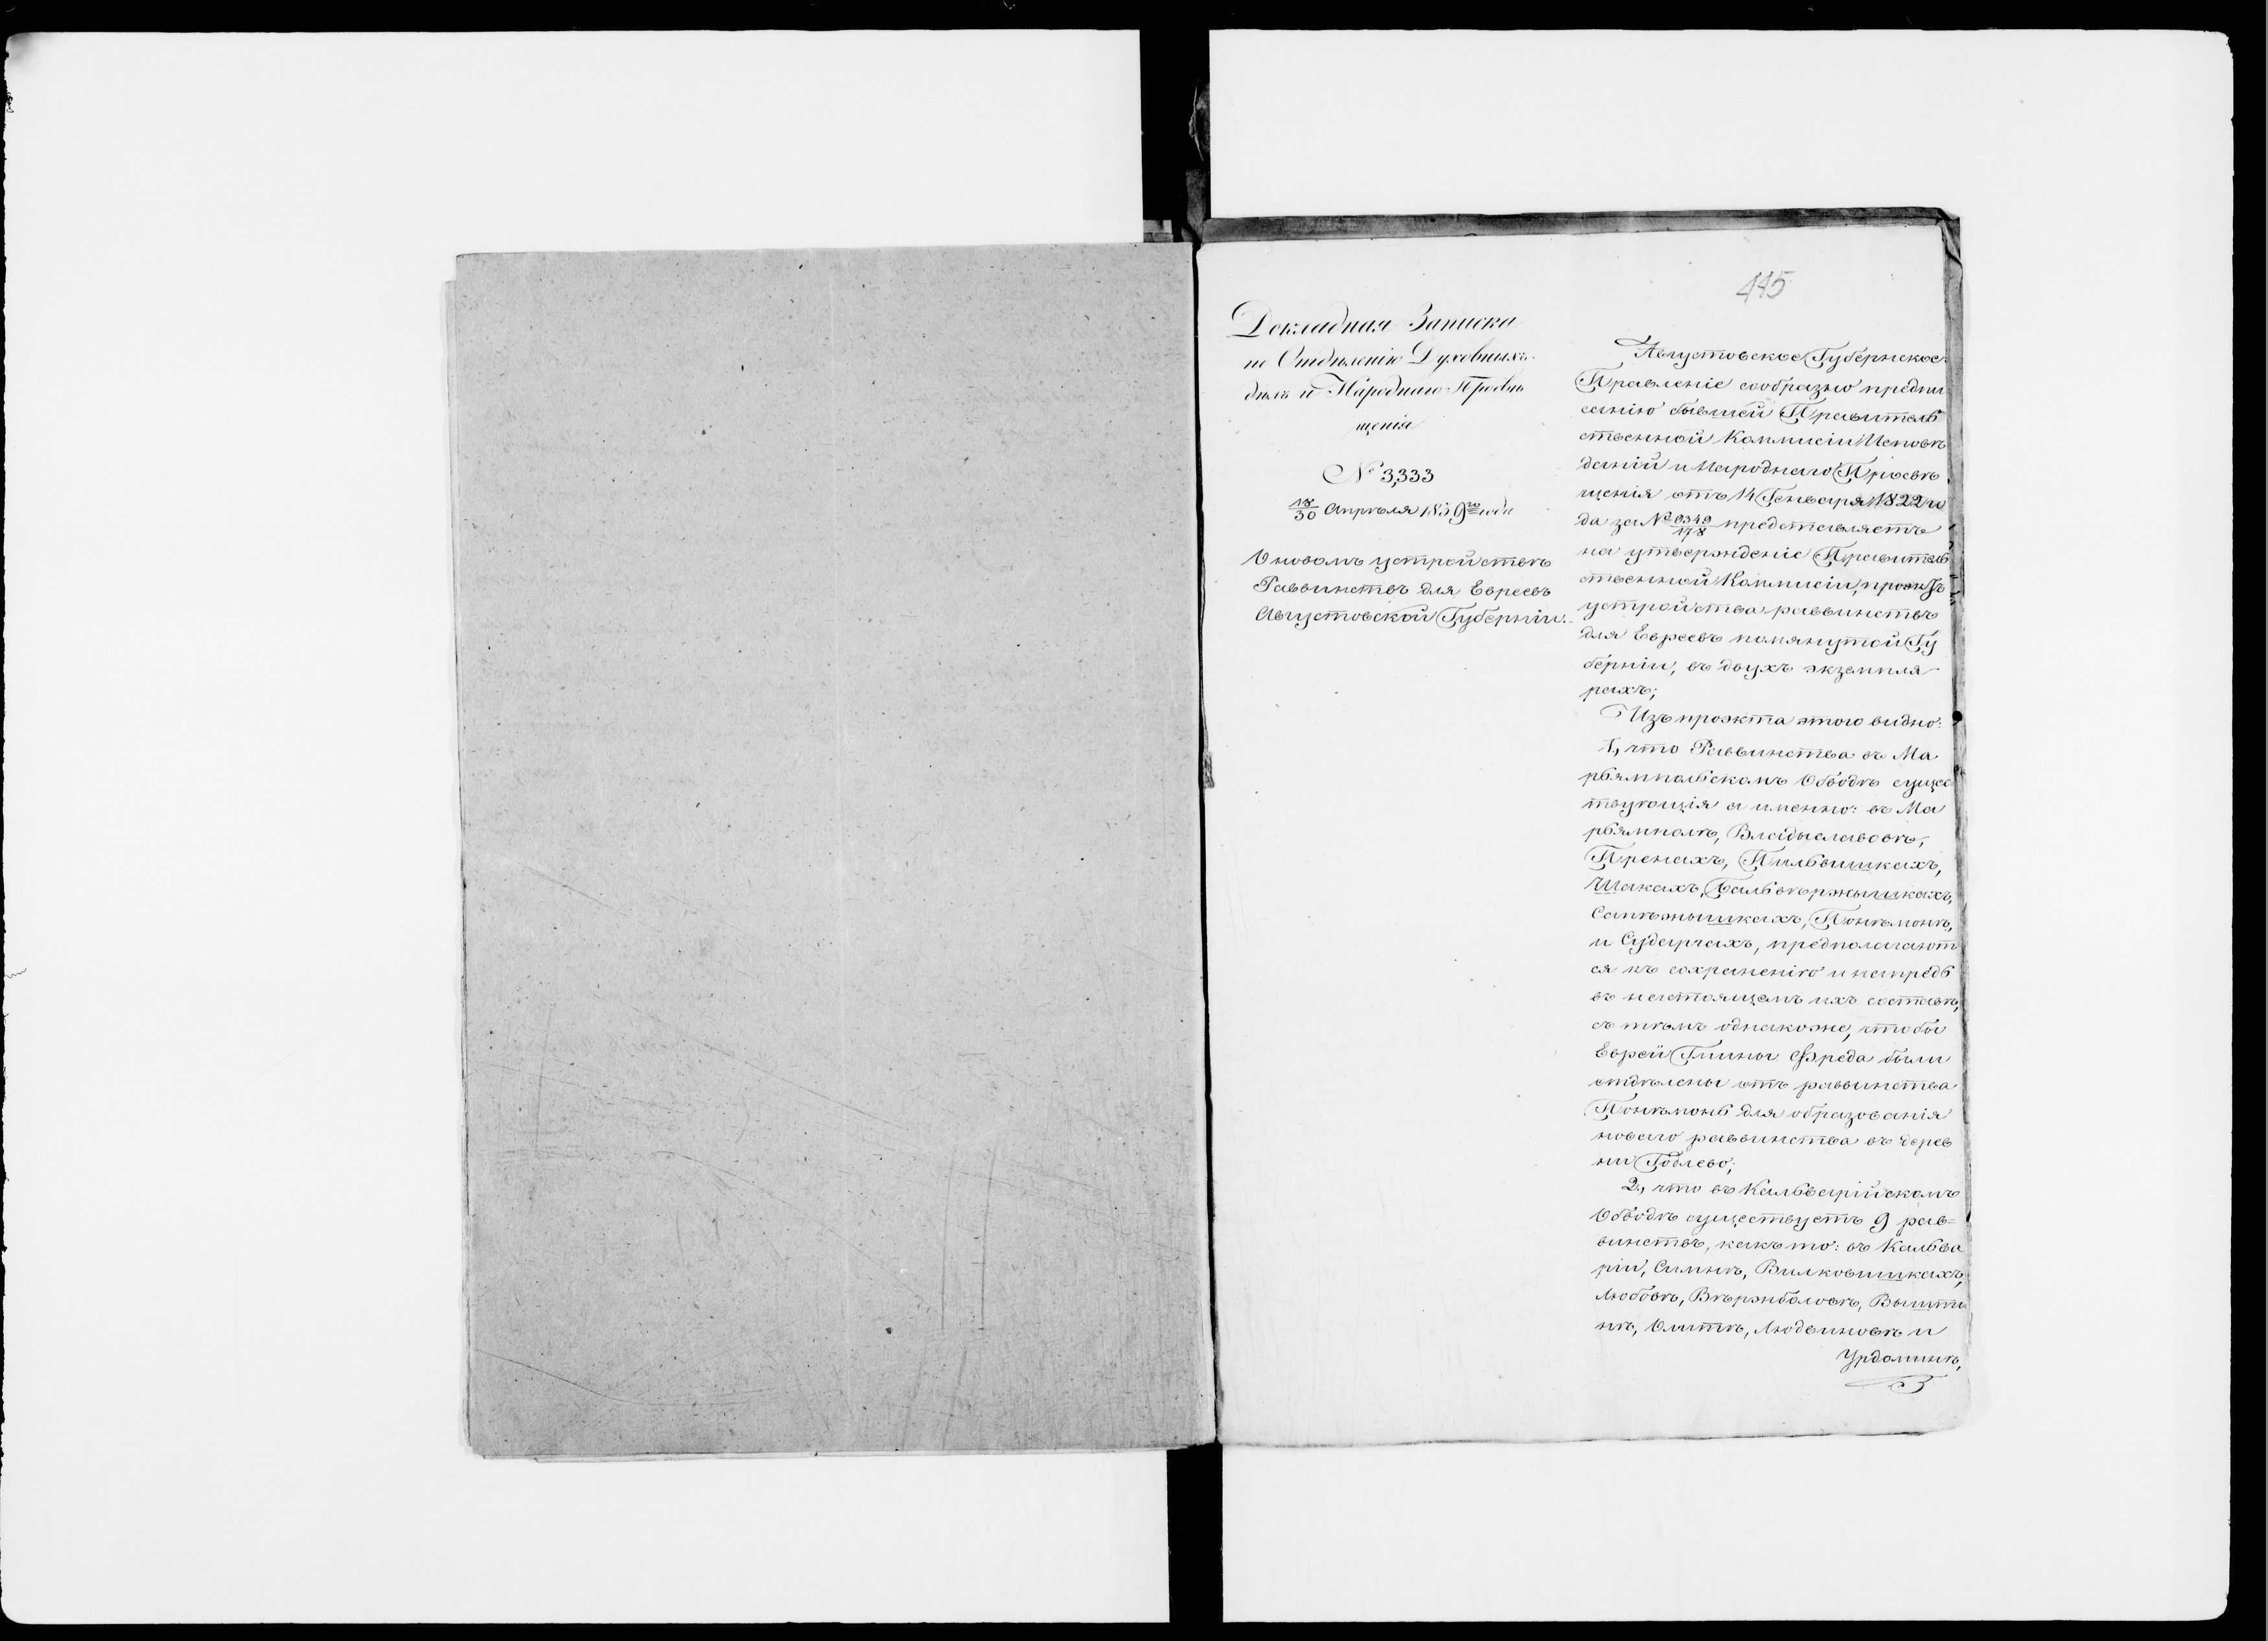 445
Докладная Записка
по Отдѣленію Духовныхъ
дѣлъ и Народнаго Просвѣ
щенія
№ 3,333
18/30 Апрѣля 1839го года
О новомъ устройствѣ
Раввинствъ для Евреевъ
Августовской Губерніи.
Августовское Губернское
Правленіе сообразно предпи
санію бывшей Правитель
ственной Коммисіи Исповѣ
даній и Народнаго Просвѣ
щенія отъ 14 Генваря 1822 го
да за № 6349/178 представляетъ
на утвержденіе Правитель
ственной Коммисіи, проэктъ
устройства раввинствъ
для Евреевъ помянутой Гу
берніи, въ двухъ экземпля
рахъ;
Изъ проэкта этого видно:
1, что Раввинства въ Ма
рьямпольскомъ Обводѣ сущес
твующія а именно: въ Ма
рьямполѣ, Владыславовѣ,
Пренахъ, Пильвишкахъ,
Шакахъ, Бальвѣржишкахъ,
Сапѣжишкахъ, Понѣмонѣ,
и Сударгахъ, предполагают
ся къ сохраненію и напредь
въ настоящемъ ихъ составѣ,
съ тѣмъ однакоже, чтобы
Евреи Гмины Фреда были
отдѣлены отъ раввинства
Понѣмонь для образованія
новаго раввинства въ дерев
ни Годлево;
2, что въ Кальварійскомъ
Обводѣ существуетъ 9 рав=
винствъ, какъ то: въ Кальва
ріи, Симнѣ, Вилковишкахъ,
Любовѣ, Вѣржболовѣ, Вышты
нѣ, Олитѣ, Людвиновѣ и
Урдоминѣ,